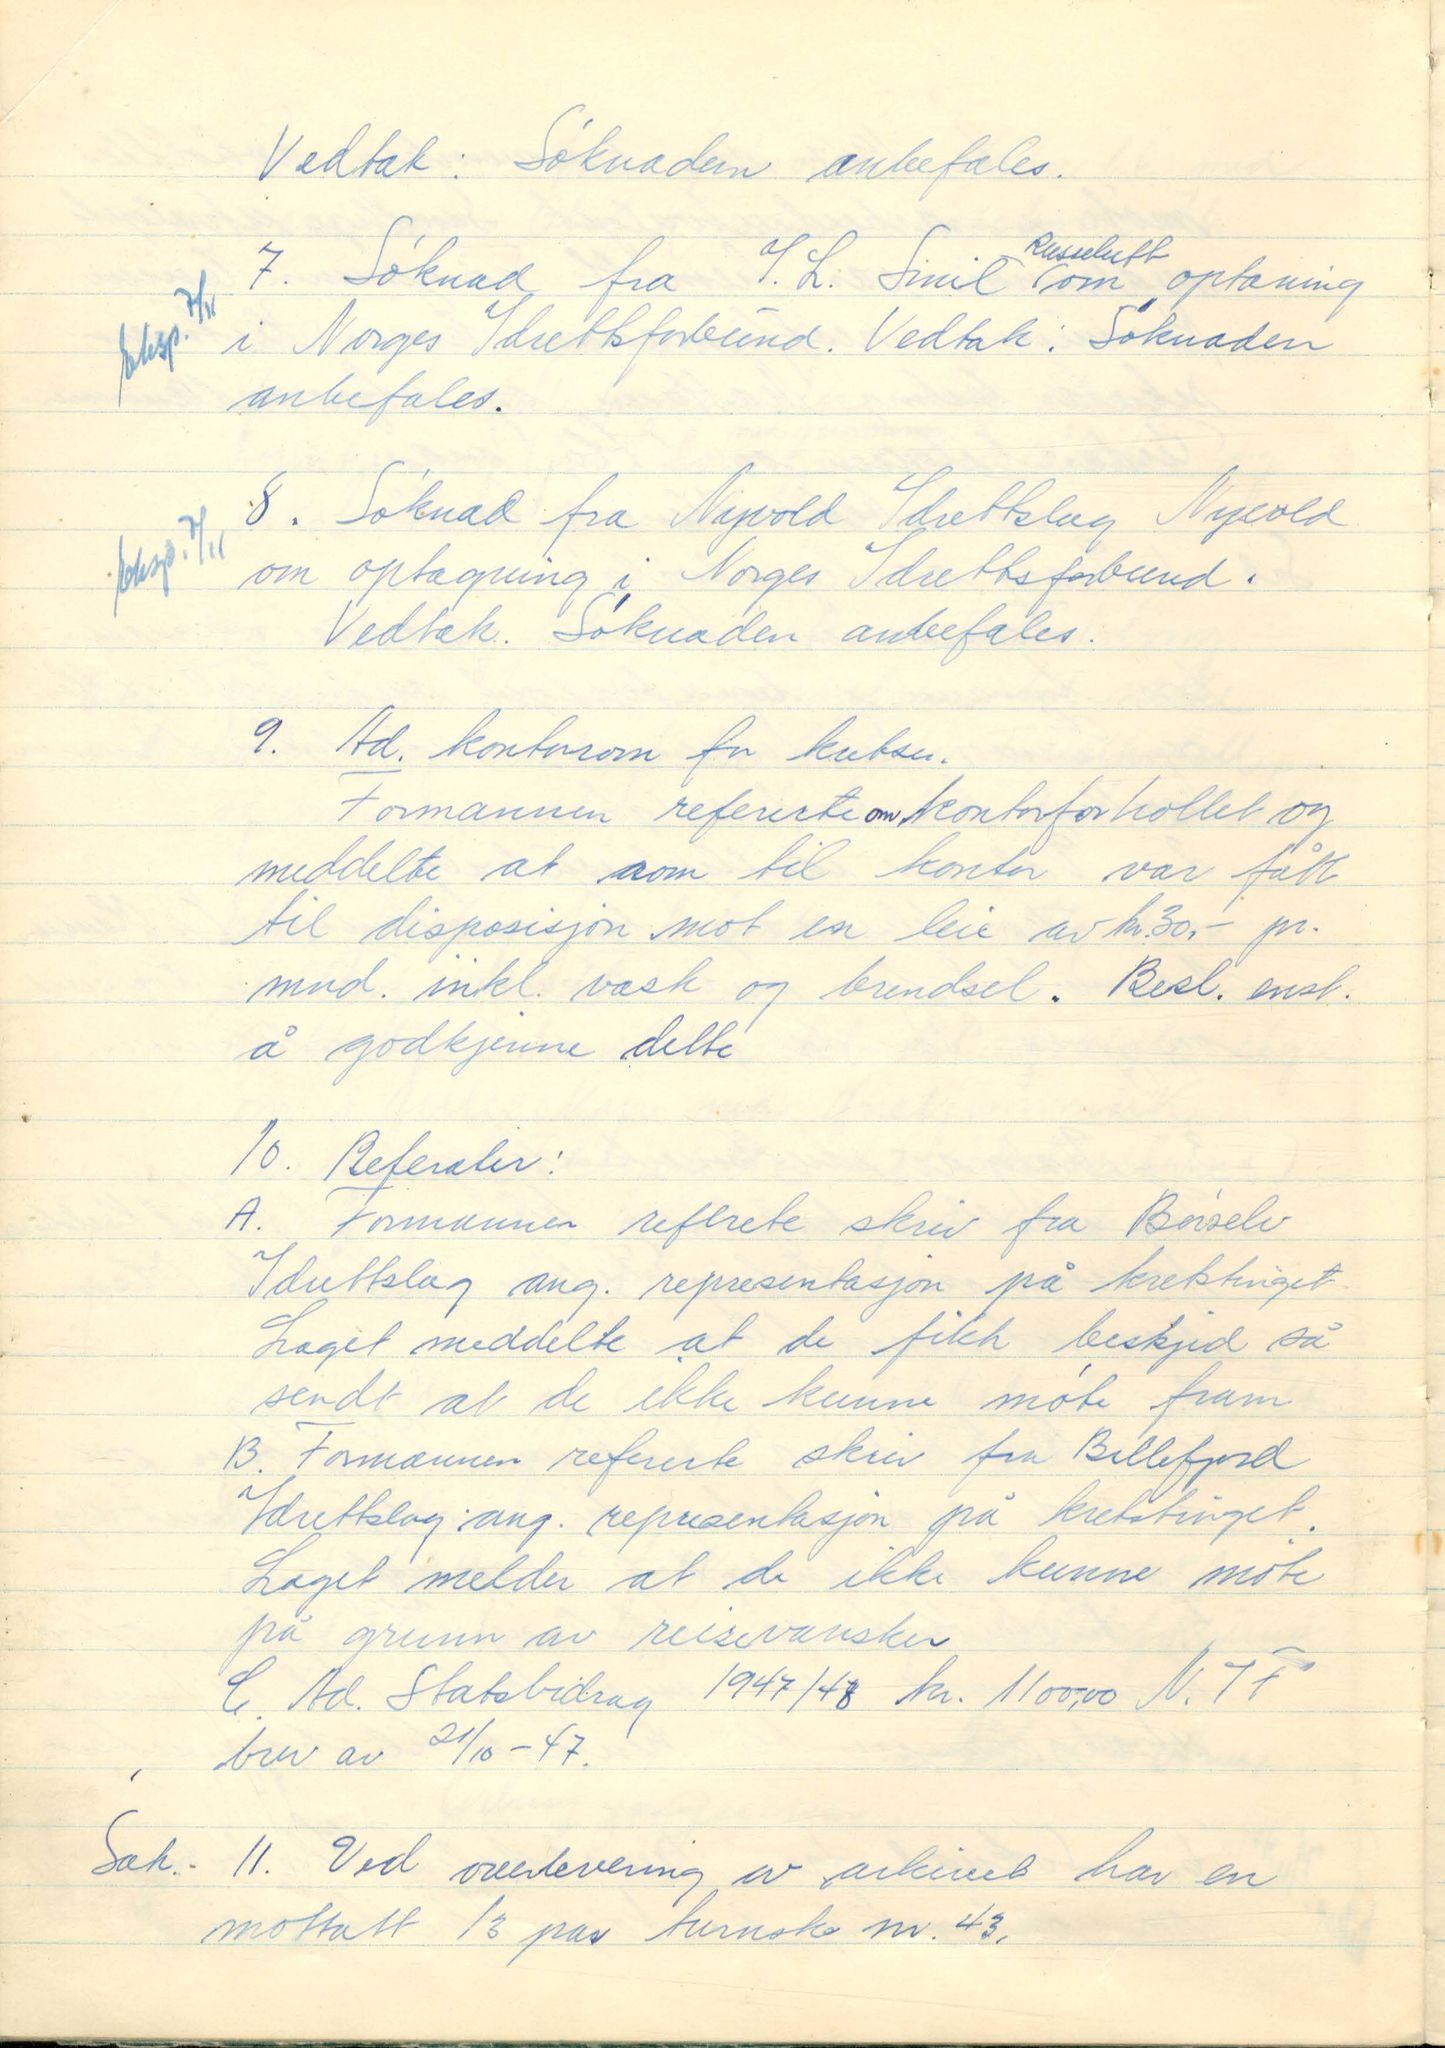 Vedtak: Söknaden anbefales.
7. Söknad fra I.L. Smil Russeluft om optaning
eksp. 7/11
i Norges Idrettsforbund. Vedtak: Söknaden
anbefales.
8. Söknad fra Nyvold Idrettslag Nyvold
eksp. 7/11
om optagning i Norges Idrettsforbund.
Vedtak. Söknaden anbefales.
9. Ad. kontorrom for kretsen.
Formannen refererte om kontorforhollet og
meddelte at rom til kontor var fått
til disposisjon mot en leie av kr. 30,- pr.
mnd. inkl. vask og brendsel. Besl. enst.
å godkjenne dette
10. Referater:
A. Formannen referete skriv fra Börselv
Idrettslag ang. representasjon på kretstinget
Laget meddelte at de fikk beskjed så
sendt at de ikke kunne möte fram
B. Formannen refererte skriv fra Billefjord
Idrettslag ang. representasjon på kretstinget.
Laget melder at de ikke kunne möte
på grunn av reisevansker
C. Ad. Statsbidrag 1947/48 kr. 1100,00 N.I.F
brev av 21/10-47.
Sak.- 11. Ved overlevering av arkivet har en
mottatt 13 par turnsko nr. 43.